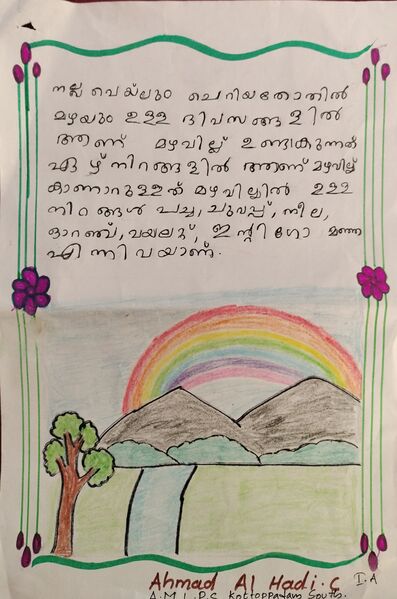 നല്ല വെയ്ലും ചെറിയതോതിൽ
മഴയും ഉള്ള ദിവസങ്ങളിൽ
ആണ് മഴവില്ല് ഉണ്ടാകുന്നത്
ഏഴ് നിറങ്ങളിൽ ആണ് മഴവില്ല്
കാണാറുള്ളത് മഴവില്ലിൽ ഉള്ള
നിറങ്ങൾ പച്ച, ചുവപ്പ്, നീല,
ഓറഞ്ച്, വയലറ്റ്, ഇന്റിഗോ മഞ്ഞ
എന്നിവയാണ്.
Ahmad Al Hadi. C I.A
A.M.L.P.S Kottoppadam South.